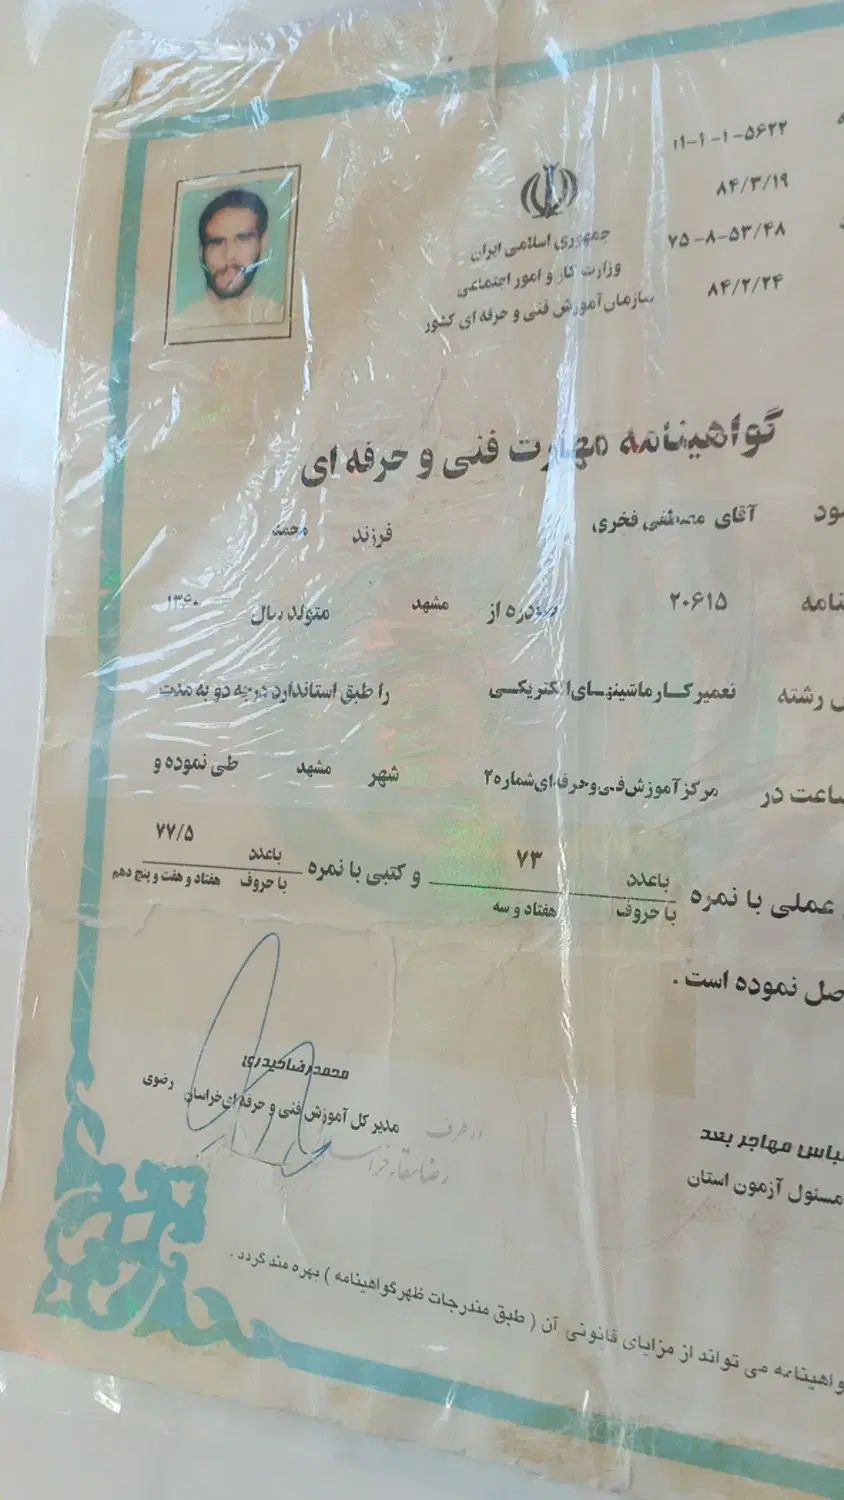 ۱۱-۱-۱-۵۶۲۲
۸۴/۳/۱۹
۷۵-۸-۵۳/۴۸
۸۴/۲/۲۴
جمهوری اسلامی ایران
وزارت کار و امور اجتماعی
سازمان آموزش فنی و حرفه ای کشور
گواهینامه مهارت فنی و حرفه ای
آقای مصطفی فخری فرزند محمد
۲۰۶۱۵ صادره از مشهد متولد سال ۱۳۶۰
رشته تعمیرکار ماشینهای الکتریکی را طبق استاندارد درجه دو به مدت
ساعت در مرکز آموزش فنی و حرفه ای شماره ۲ شهر مشهد طی نموده و
عملی با نمره باعدد ۷۳ و کتبی با نمره باعدد ۷۷/۵
با حروف هفتاد و سه با حروف هفتاد و هفت و پنج دهم
نموده است .
محمدرضا حیدری
مدیر کل آموزش فنی و حرفه ای خراسان رضوی
از طرف
مهاجر بعد
مسئول آزمون استان
می تواند از مزایای قانونی آن ( طبق مندرجات ظهر گواهینامه ) بهره مند گردد .